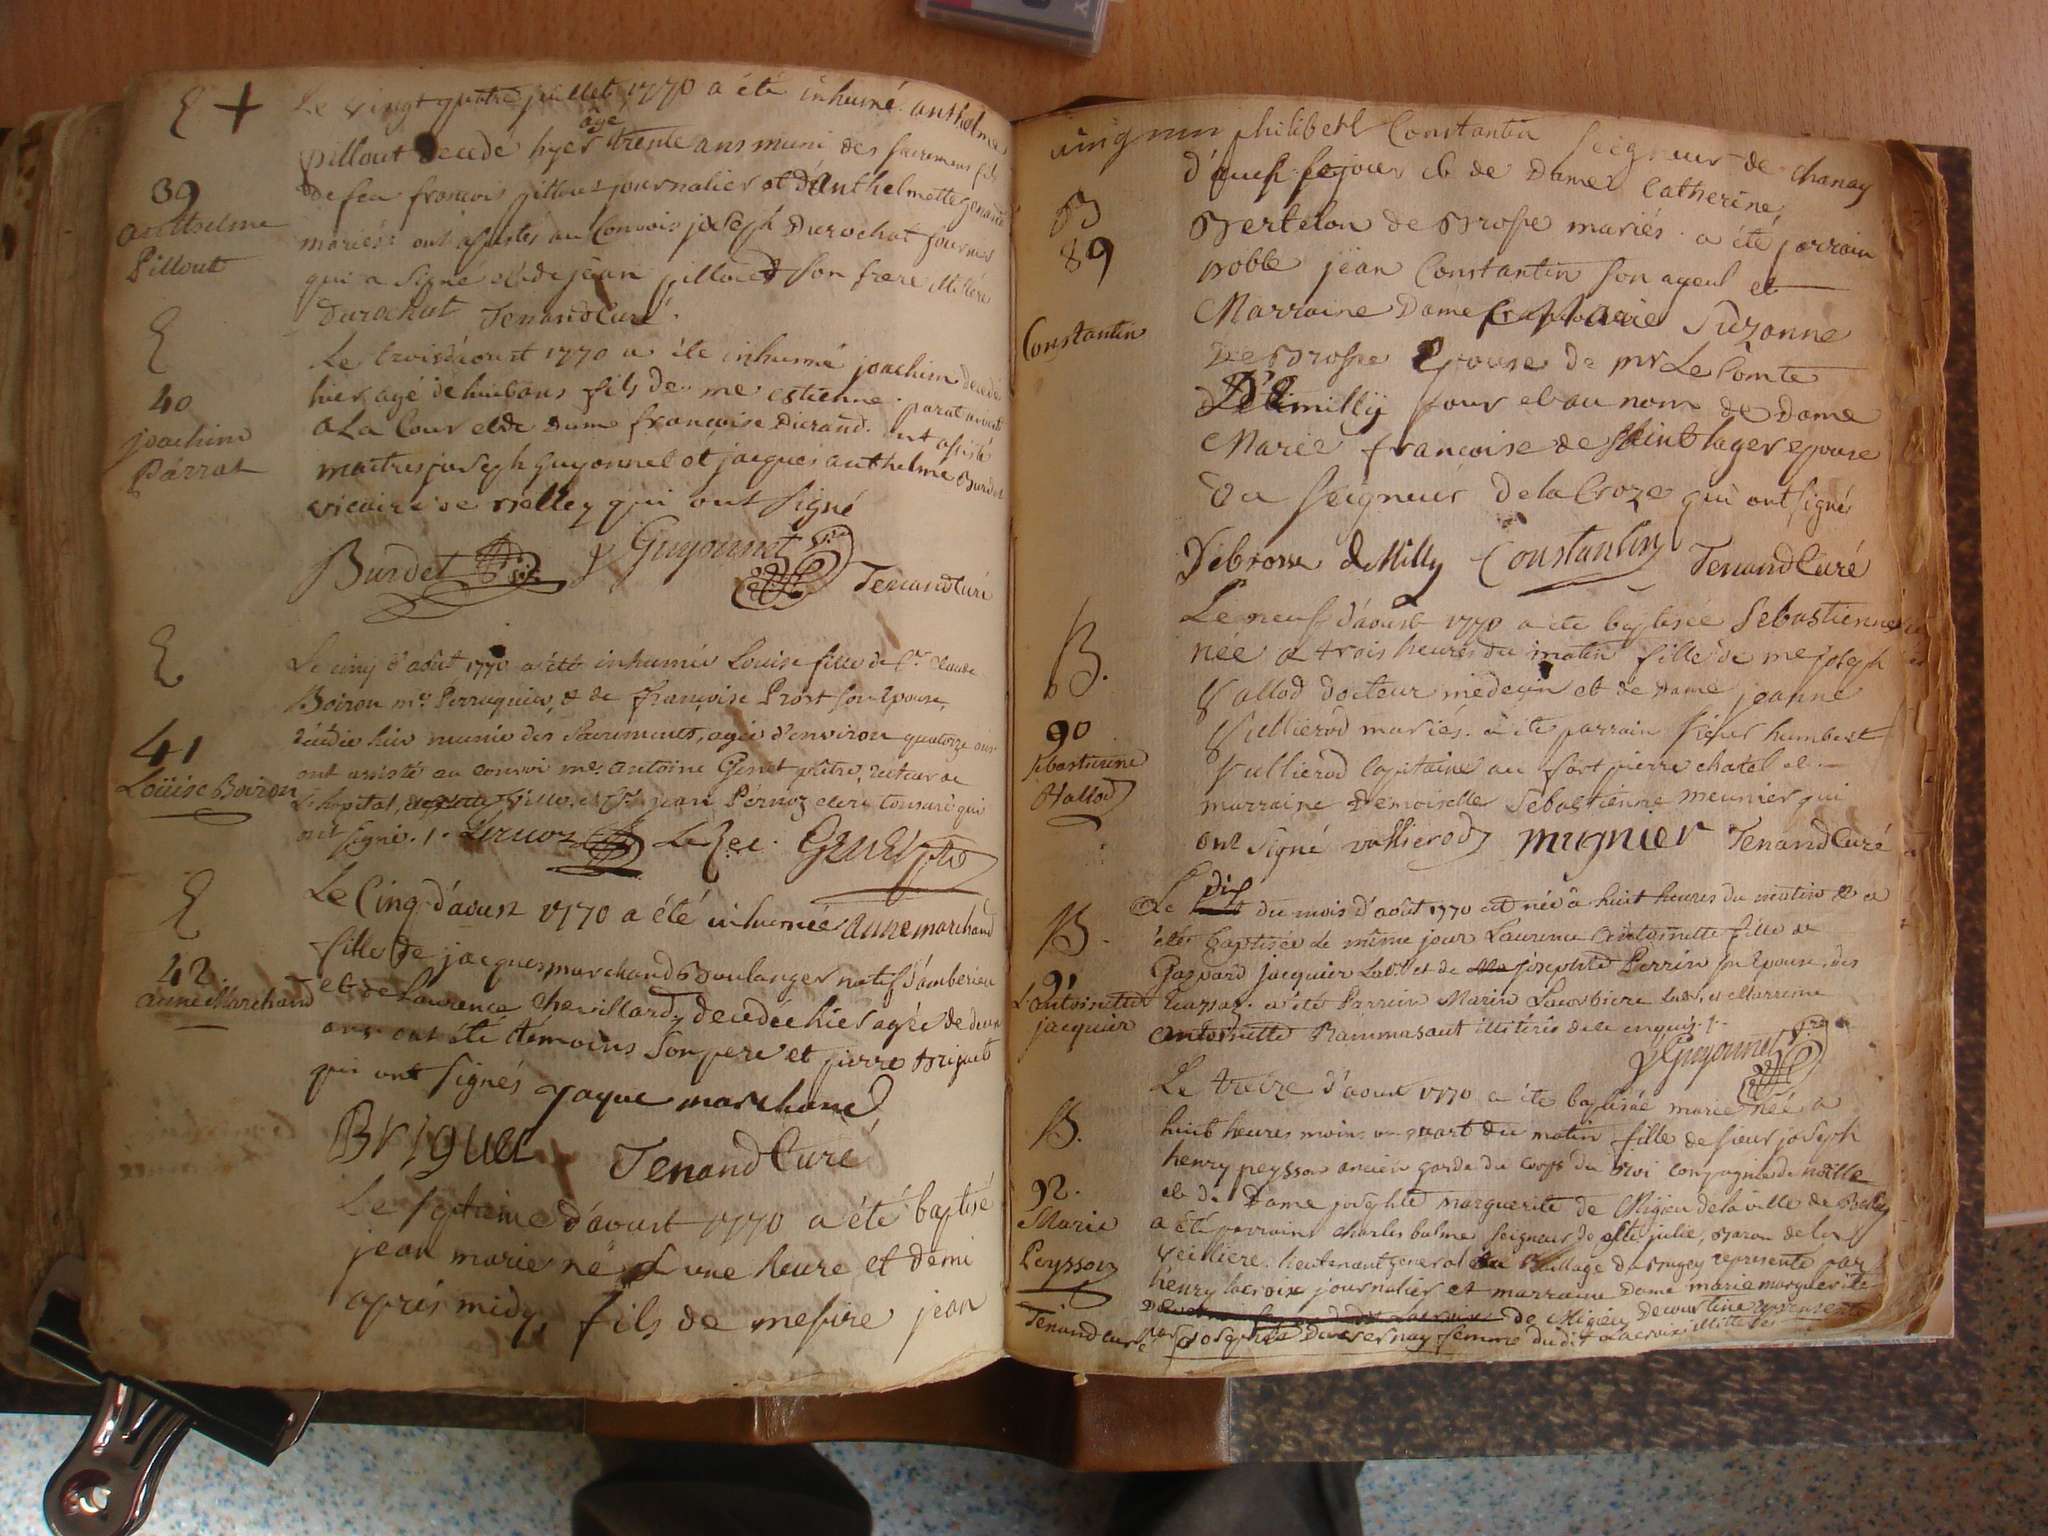 E +
Le vingt quatre juillet 1770 a été inhumé anthelme
âge
pillout decedé hyer trente ans muni des sacremens fils
39
de feu françois pillout journalier et d'anthelmette
anthelme
mariés: ont assistés au Convois joseph Durochat
Pillout
qui a signé et de jean pillout son frere illitéré
durochat Tenand Curé.
E
Le trois d'aoust 1770 a été inhumé joachim decedé
40
hier agé de huit ans fils de me estienne parrat avocat
joachim
a La Cour et de dame françoise Durand. ont assisté
Parrat
maitres joseph guyonnet et jacques anthelme Burdet
vicaire de Belley qui ont signé
Burdet Guyonnet Tenand Curé
E
Le cinq d'août 1770 a été inhumée Louise fille de Sr Claude
Boiron me Perruquier, & de françoise Prost son Epouse,
41
décédée hier munie des Sacrements, agée d'environ quatorze ans
Loüise Boiron
ont assisté au convoi mes antoine Genet prêtre, recteur de
L'hopital, ville, & Sr jean Pernoz clerc tonsuré qui
ont signé. Pernoz Genet
E
Le Cinq d'aoust 1770 a été inhumée anne marchand
42.
fille de jacques marchand Boulanger natif d'amberieu
anne Marchand
et de Laurence chevillard decedée hier agée de deux
ans ont été temoins son pere et pierre Briquet
qui ont signés jaque marchand
Briquet Tenand Curé
Le septieme d'aoust 1770 a été baptisé
jean marie né a une heure et demi
apres midy, fils de messire jean
philibert Constantin Seigneur de chanay
d' sejour et de Dame Catherine
B
Bertelon de Brosse mariés. a été parrain
89
noble jean Constantin son ayeul et
Constantin
Marraine Dame Marie Suzanne
De Brosse Epouse de mr Le Comte
De milly pour et au nom de Dame
Marie françoise de Saint lager epouse
Du seigneur De la Croze qui ont signés
Debrosse de Milly Constantin Tenand Curé
B.
Le neuf d'aoust 1770 a été baptisée Sebastienne
née a trois heures du matin fille de me joseph
Vallod docteur medecin et de Dame jeanne
90
Vullierod mariés. a été parrain sieur humbert
Sebastienne
Vullierod Capitaine au fort pierre chatel et
Vallod
marraine Demoiselle Sebastienne meunier qui
ont signé vullierod mugnier Tenand Curé
dix
B.
Le du mois d'août 1770 est née à huit heures du matin & a
été baptisée le même jour Laurence Antoinette fille de
91
Gaspard jacquier Labr et de josephte Perrin son Epouse, des
antoinette
a été Parrain Marin Lacorbiere Labr, et Marreine
jacquier
antoinette Rammasaut illitérés de ce enquis.
Guyonnet
B.
Le treize d'aoust 1770 a été baptisée marie née a
huit heures moins un quart du matin fille de sieur joseph
henry peysson ancien garde du corps du Roi compagnie de noaille
92.
et de Dame josephte marguerite de Migieu de la ville de Belley
Marie
a été parrain charles balme seigneur de ste julie, Baron de la
Peysson
veilliere lieutenant general au Baillage du Bugey representé par
henry lacroix journalier et marraine dame marie marguerite
de Migieu decourtine representée
Tenand curé
par josephte duvernay femme dudit Lacroix illitérés